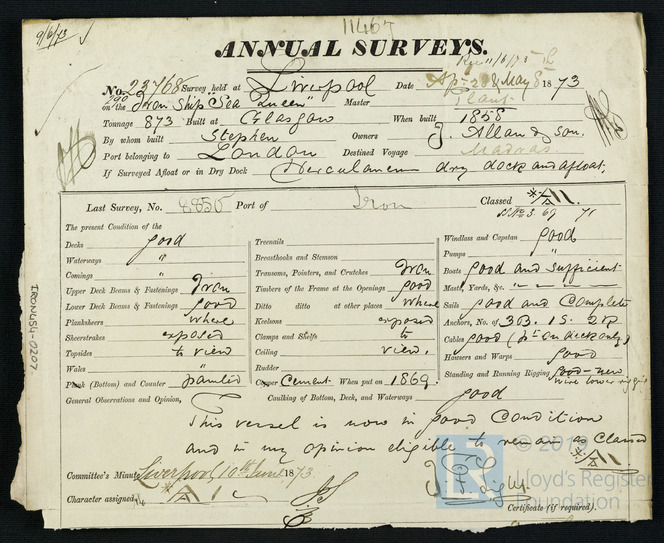 9/6/73
11467
ANNUAL SURVEYS.
Rec 11/6/73
No. 23768 Survey held at Liverpool Date Apr 28 & May 8 1873
on the Iron Ship "Sea Queen" Master
Tonnage 873 Built at Glasgow When built 1858
By whom built Stephen Owners J. Allan & son.
Port belonging to London Destined Voyage Madras
If Surveyed Afloat or in Dry Dock Herculaneum dry dock and afloat.
Last Survey, No. 8850 Port of Iron Classed *A1.
The present Condition of the
Decks good
Waterways "
Comings "
Upper Deck Beams & Fastenings Iron
Lower Deck Beams & Fastenings good
Planksheers where
Sheerstrakes exposed
Topsides to view
Wales "
Plank (Bottom) and Counter painted
Treenails
Breasthooks and Stemson
Transoms, Pointers, and Crutches Iron
Timbers of the Frame at the Openings good
Ditto ditto at other places where
Keelsons exposed
Clamps and Shelfs to
Ceiling view.
Rudder
Copper Cement When put on 1869.
Caulking of Bottom, Deck, and Waterways good
Windlass and Capstan good
Pumps "
Boats good and sufficient
Masts, Yards, &c. " " "
Sails good and Complete
Anchors, No. of 3B. 1S. 2K
Cables good (pt on deck only)
Hawsers and Warps good
Standing and Running Rigging good - new
wire lower rigging
General Observations and Opinion,
This vessel is now in good Condition
and in my opinion eligible to remain as Classed
*A1
Committee's Minute Liverpool 10th June 1873.
Character assigned *A1
Certificate (if required).
IRON454-0207
Lloyd's Register
Foundation